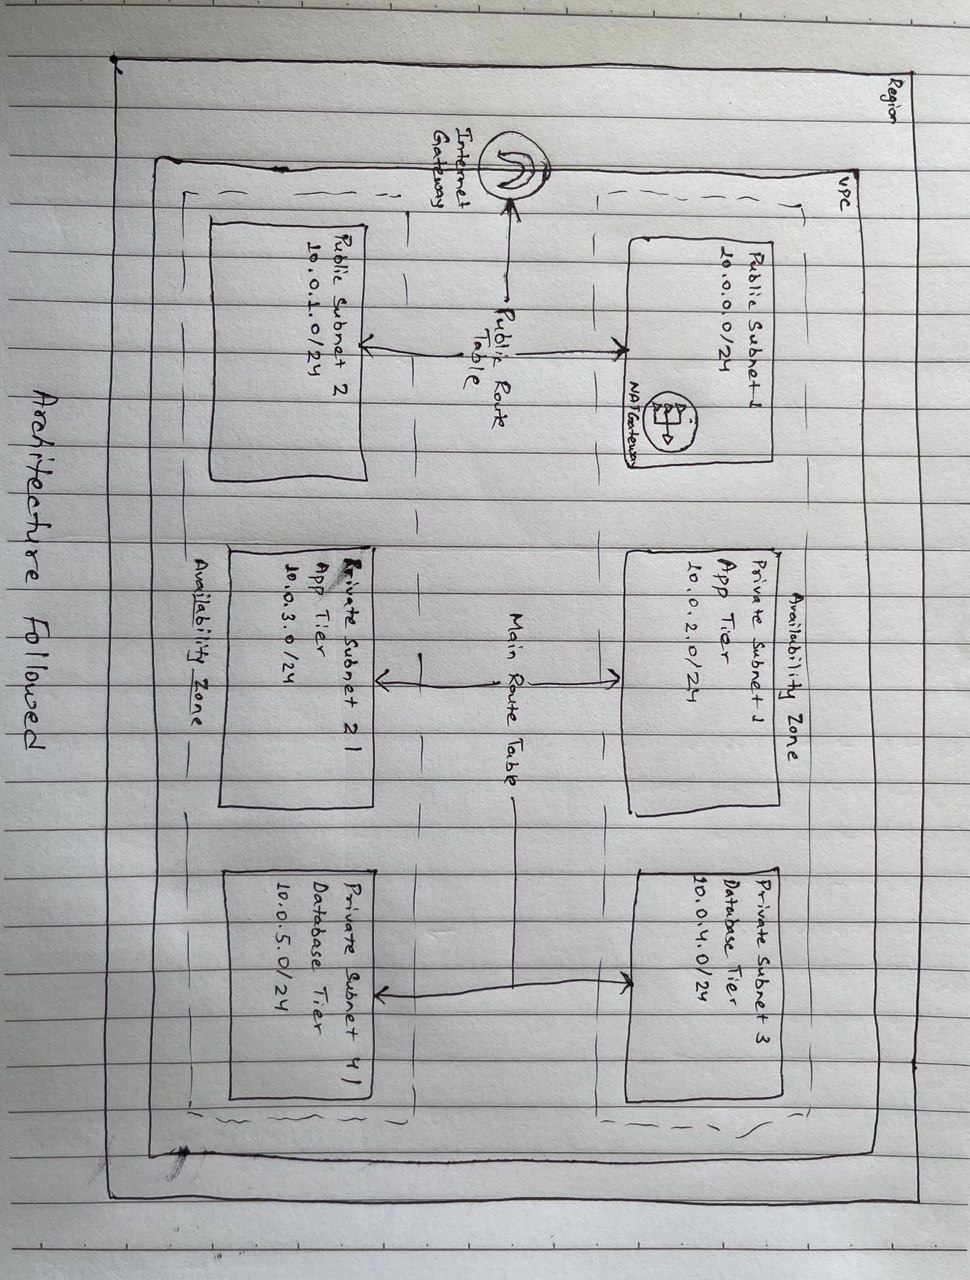 Region
VPC
Availability Zone
Public Subnet 1
10.0.0.0/24
NAT Gateway
Private Subnet 1
App Tier
10.0.2.0/24
Private Subnet 3
Database Tier
10.0.4.0/24
Internet
Gateway
Public Route
Table
Main Route Table
Public Subnet 2
10.0.1.0/24
Private Subnet 2 |
App Tier
10.0.3.0/24
Private Subnet 4 |
Database Tier
10.0.5.0/24
Availability Zone
Architecture Followed